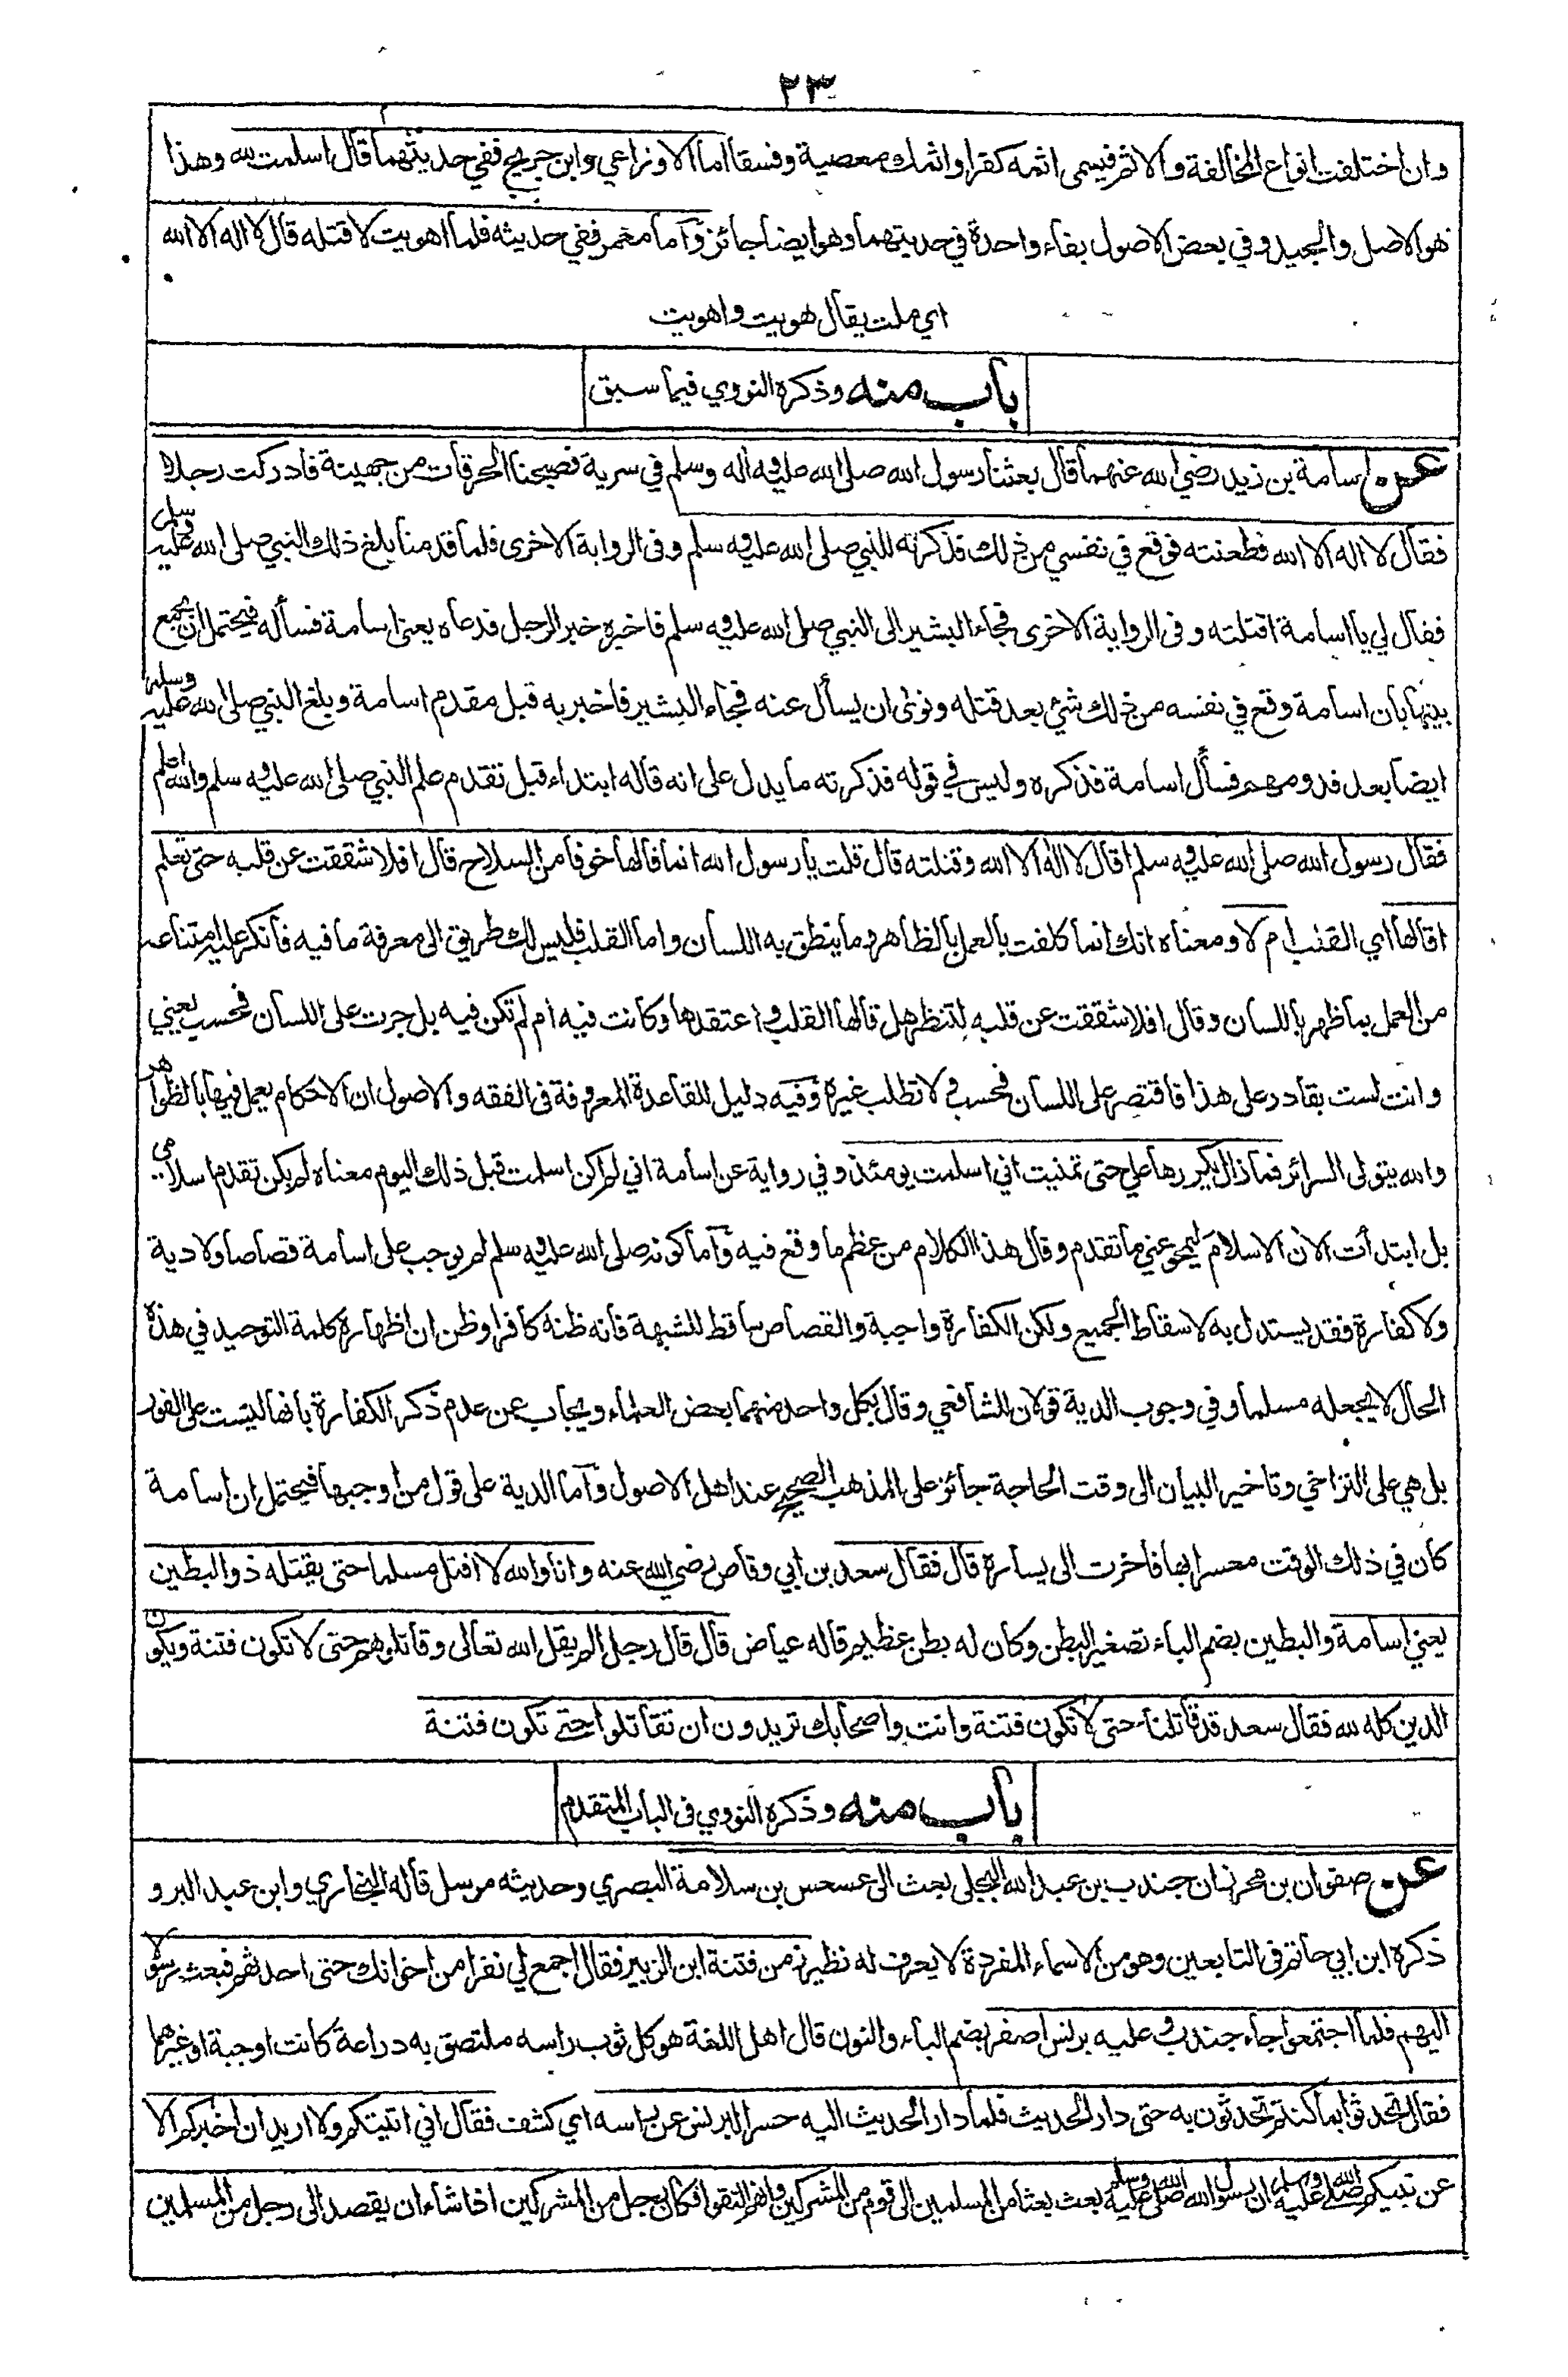 ٢٣
وان اختلفت انواع المخالفة والاثم فيسمى اثمه كفرا واثمك معصية وفسقا اما الاوزاعي وابن جريج ففي حديثهما قال اسلمت لله وهذا
هو الاصل والجيد وفي بعض الاصول بفاء واحدة في حديثهما وهو ايضا جائز وآما معمر ففي حديثه فلما اهويت لاقتله قال لا اله الا الله
اي ملت يقال هويت واهويت
باب منه وذكره النووي فيما سبق
عن اسامة بن زيد رضي الله عنهما قال بعثنا رسول الله صلى الله عليه وآله وسلم في سرية فصبحنا الحرقات من جهينة فادركت رجلا
فقال لا اله الا الله فطعنته فوقع في نفسي من ذلك فذكرته للنبي صلى الله عليه وسلم وفى الرواية الاخرى فلما قدمنا بلغ ذلك النبي صلى الله عليه وسلم
فقال لي يا اسامة اقتلته وفى الرواية الاخرى فجاء البشير الى النبي صلى الله عليه وسلم فاخبره خبر الرجل فدعاه يعنى اسامة فسأله فيحتمل ان يجمع
بينها بان اسامة وقع في نفسه من ذلك شئ بعد قتله ونوى ان يسأل عنه فجاء البشير فاخبر به قبل مقدم اسامة وبلغ النبي صلى الله عليه وسلم
ايضا بعد قدومهم فسأل اسامة فذكره وليس في قوله فذكرته ما يدل على انه قاله ابتداء قبل تقدم علم النبي صلى الله عليه وسلم والله اعلم
فقال رسول الله صلى الله عليه وسلم اقال لا اله الا الله وقتلته قال قلت يا رسول الله انما قالها خوفا من السلاح قال افلا شققت عن قلبه حتى تعلم
اقالها اي القلب ام لا ومعناه انك انما كلفت بالعمل بالظاهر وما ينطق به اللسان واما القلب فليس لك طريق الى معرفة ما فيه فأنكر عليه امتناعه
من العمل بما ظهر باللسان وقال افلا شققت عن قلبه لتنظر هل قالها القلب واعتقدها وكانت فيه ام لم تكن فيه بل جرت على اللسان فحسب يعني
وانت لست بقادر على هذا فاقتصر على اللسان فحسب ولا تطلب غيره وفيه دليل للقاعدة المعروفة في الفقه والاصول ان الاحكام يعمل فيها بالظواهر
والله يتولى السرائر فما زال يكررها علي حتى تمنيت اني اسلمت يومئذ وفي رواية عن اسامة اني لم اكن اسلمت قبل ذلك اليوم معناه لم يكن تقدم اسلامي
بل ابتدأت الان الاسلام ليمحو عني ما تقدم وقال هذا الكلام من عظم ما وقع فيه وآما كونه صلى الله عليه وسلم لم يوجب على اسامة قصاصا ولا دية
ولا كفارة فقد يستدل به لاسقاط الجميع ولكن الكفارة واجبة والقصاص ساقط للشبهة فانه ظنه كافرا وظن ان اظهاره كلمة التوحيد في هذه
الحال لا يجعله مسلما وفي وجوب الدية قولان للشافعي وقال بكل واحد منهما بعض العلماء ويجاب عن عدم ذكر الكفارة بانها ليست على الفور
بل هي على التراخي وتاخير البيان الى وقت الحاجة جائز على المذهب الصحيح عند اهل الاصول وآما الدية على قول من اوجبها فيحتمل ان اسامة
كان في ذلك الوقت معسرا بها فاخرت الى يساره قال فقال سعد بن ابي وقاص رضي الله عنه وانا والله لا اقتل مسلما حتى يقتله ذو البطين
يعني اسامة والبطين بضم الباء تصغير البطن وكان له بطن عظيم قاله عياض قال قال رجل الم يقل الله تعالى وقاتلوهم حتى لا تكون فتنة ويكون
الدين كله لله فقال سعد قد قاتلنا حتى لا تكون فتنة وانت واصحابك تريدون ان تقاتلوا حتى تكون فتنة
باب منه وذكره النووي فى الباب المتقدم
عن صفوان بن محرز ان جندب بن عبد الله البجلي بعث الى عسعس بن سلامة البصري وحديثه مرسل قاله البخاري وابن عبد البر و
ذكره ابن ابي حاتم فى التابعين وهو من الاسماء المفردة لا يعرف له نظير زمن فتنة ابن الزبير فقال اجمع لي نفرا من اخوانك حتى احدثهم فبعث رسولا
اليهم فلما اجتمعوا جاء جندب وعليه برنس اصفر بضم الباء والنون قال اهل اللغة هو كل ثوب راسه ملتصق به دراعة كانت او جبة او غيرهما
فقال تحدثوا بما كنتم تحدثون به حتى دار الحديث فلما دار الحديث اليه حسر البرنس عن راسه اي كشف فقال اني اتيتكم ولا اريد ان اخبركم الا
عن نبيكم صلى الله عليه وسلم ان رسول الله صلى الله عليه وسلم بعث بعثا من المسلمين الى قوم من المشركين وانهم التقوا فكان رجل من المشركين اذا شاء ان يقصد الى رجل من المسلمين